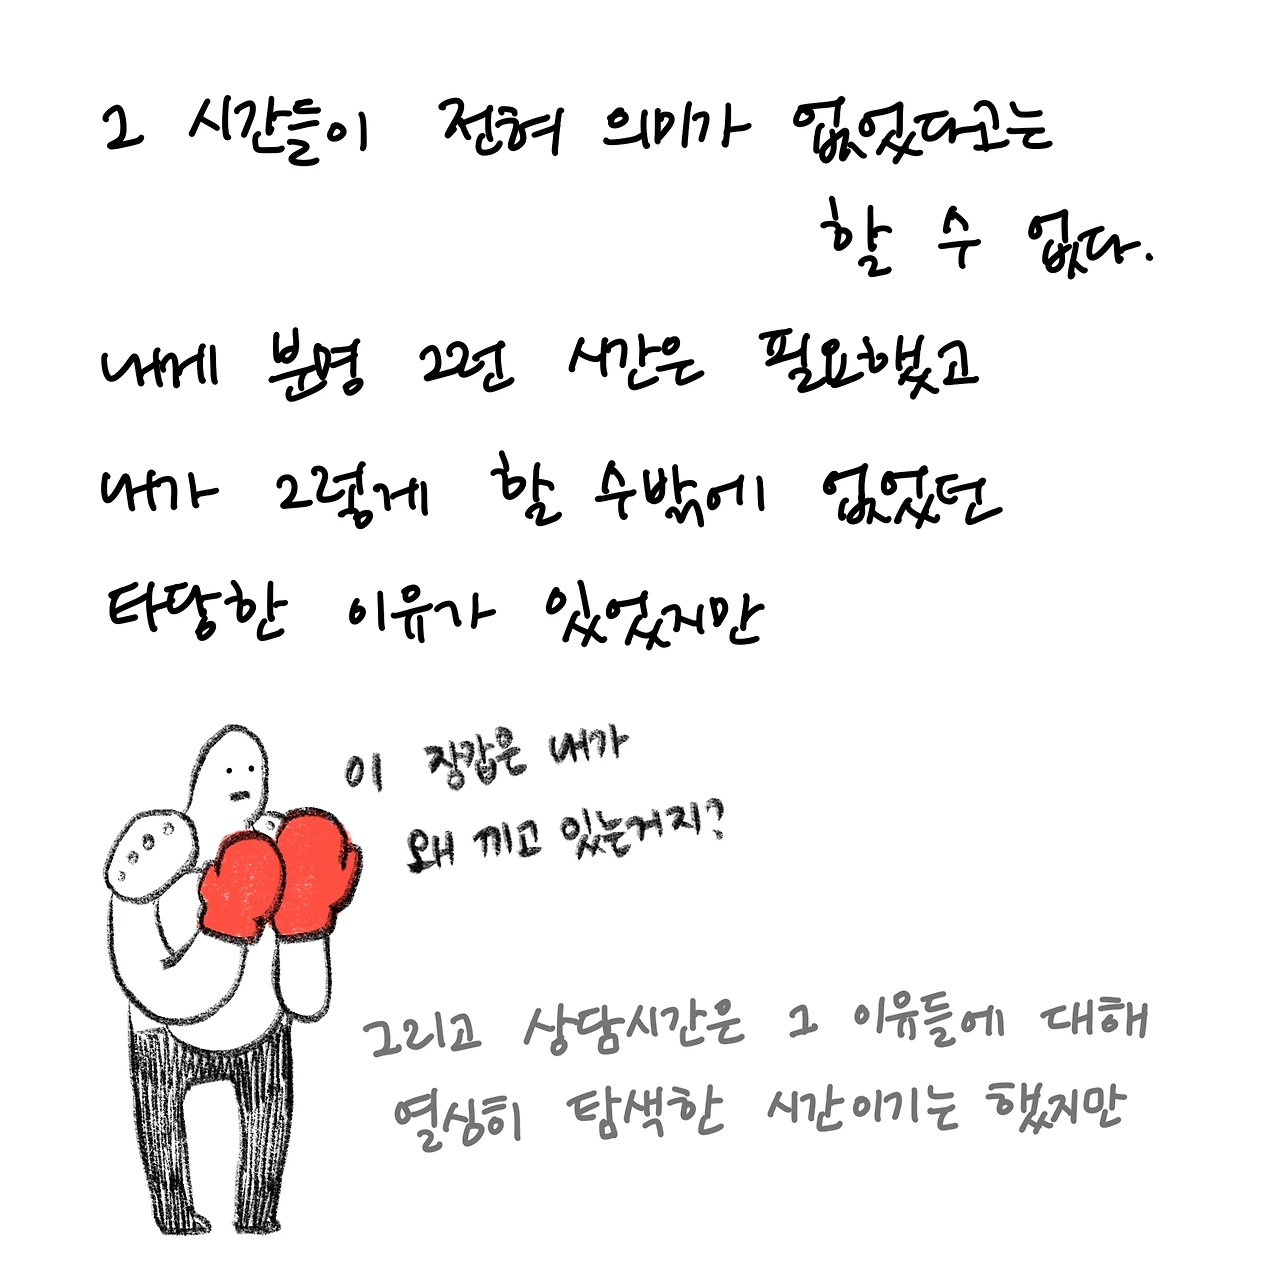 그 시간들이 전혀 의미가 없었다고는
할 수 없다.
내게 분명 그런 시간은 필요했고
내가 그렇게 할 수밖에 없었던
타당한 이유가 있었지만
이 장갑은 내가
왜 끼고 있는거지?
그리고 상담시간은 그 이유들에 대해
열심히 탐색한 시간이기는 했지만